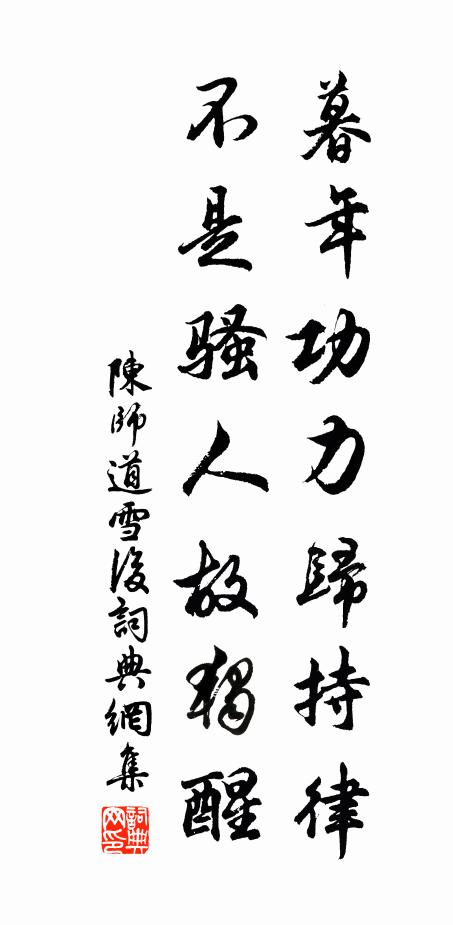 暮年功力歸持律
不是騷人故獨醒
陳師道雪後詞典網集
詞典網印